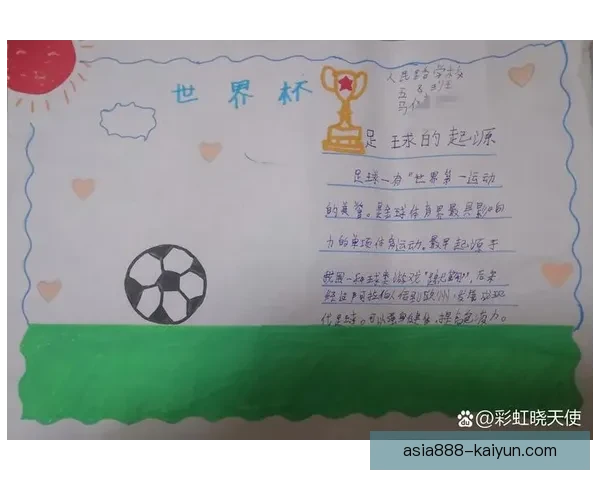 世界杯
人民路学校
五
足球的起源
足球一有"世界第一运动
的美誉。是全球体育界最具影响
力的单项体育运动。最早起源于
我国一种球类游戏"蹴鞠",后来
经过阿拉伯人传到欧洲,发展成现
代足球。可以强身健体,
@彩虹晓天使
asia888-kaiyun.com